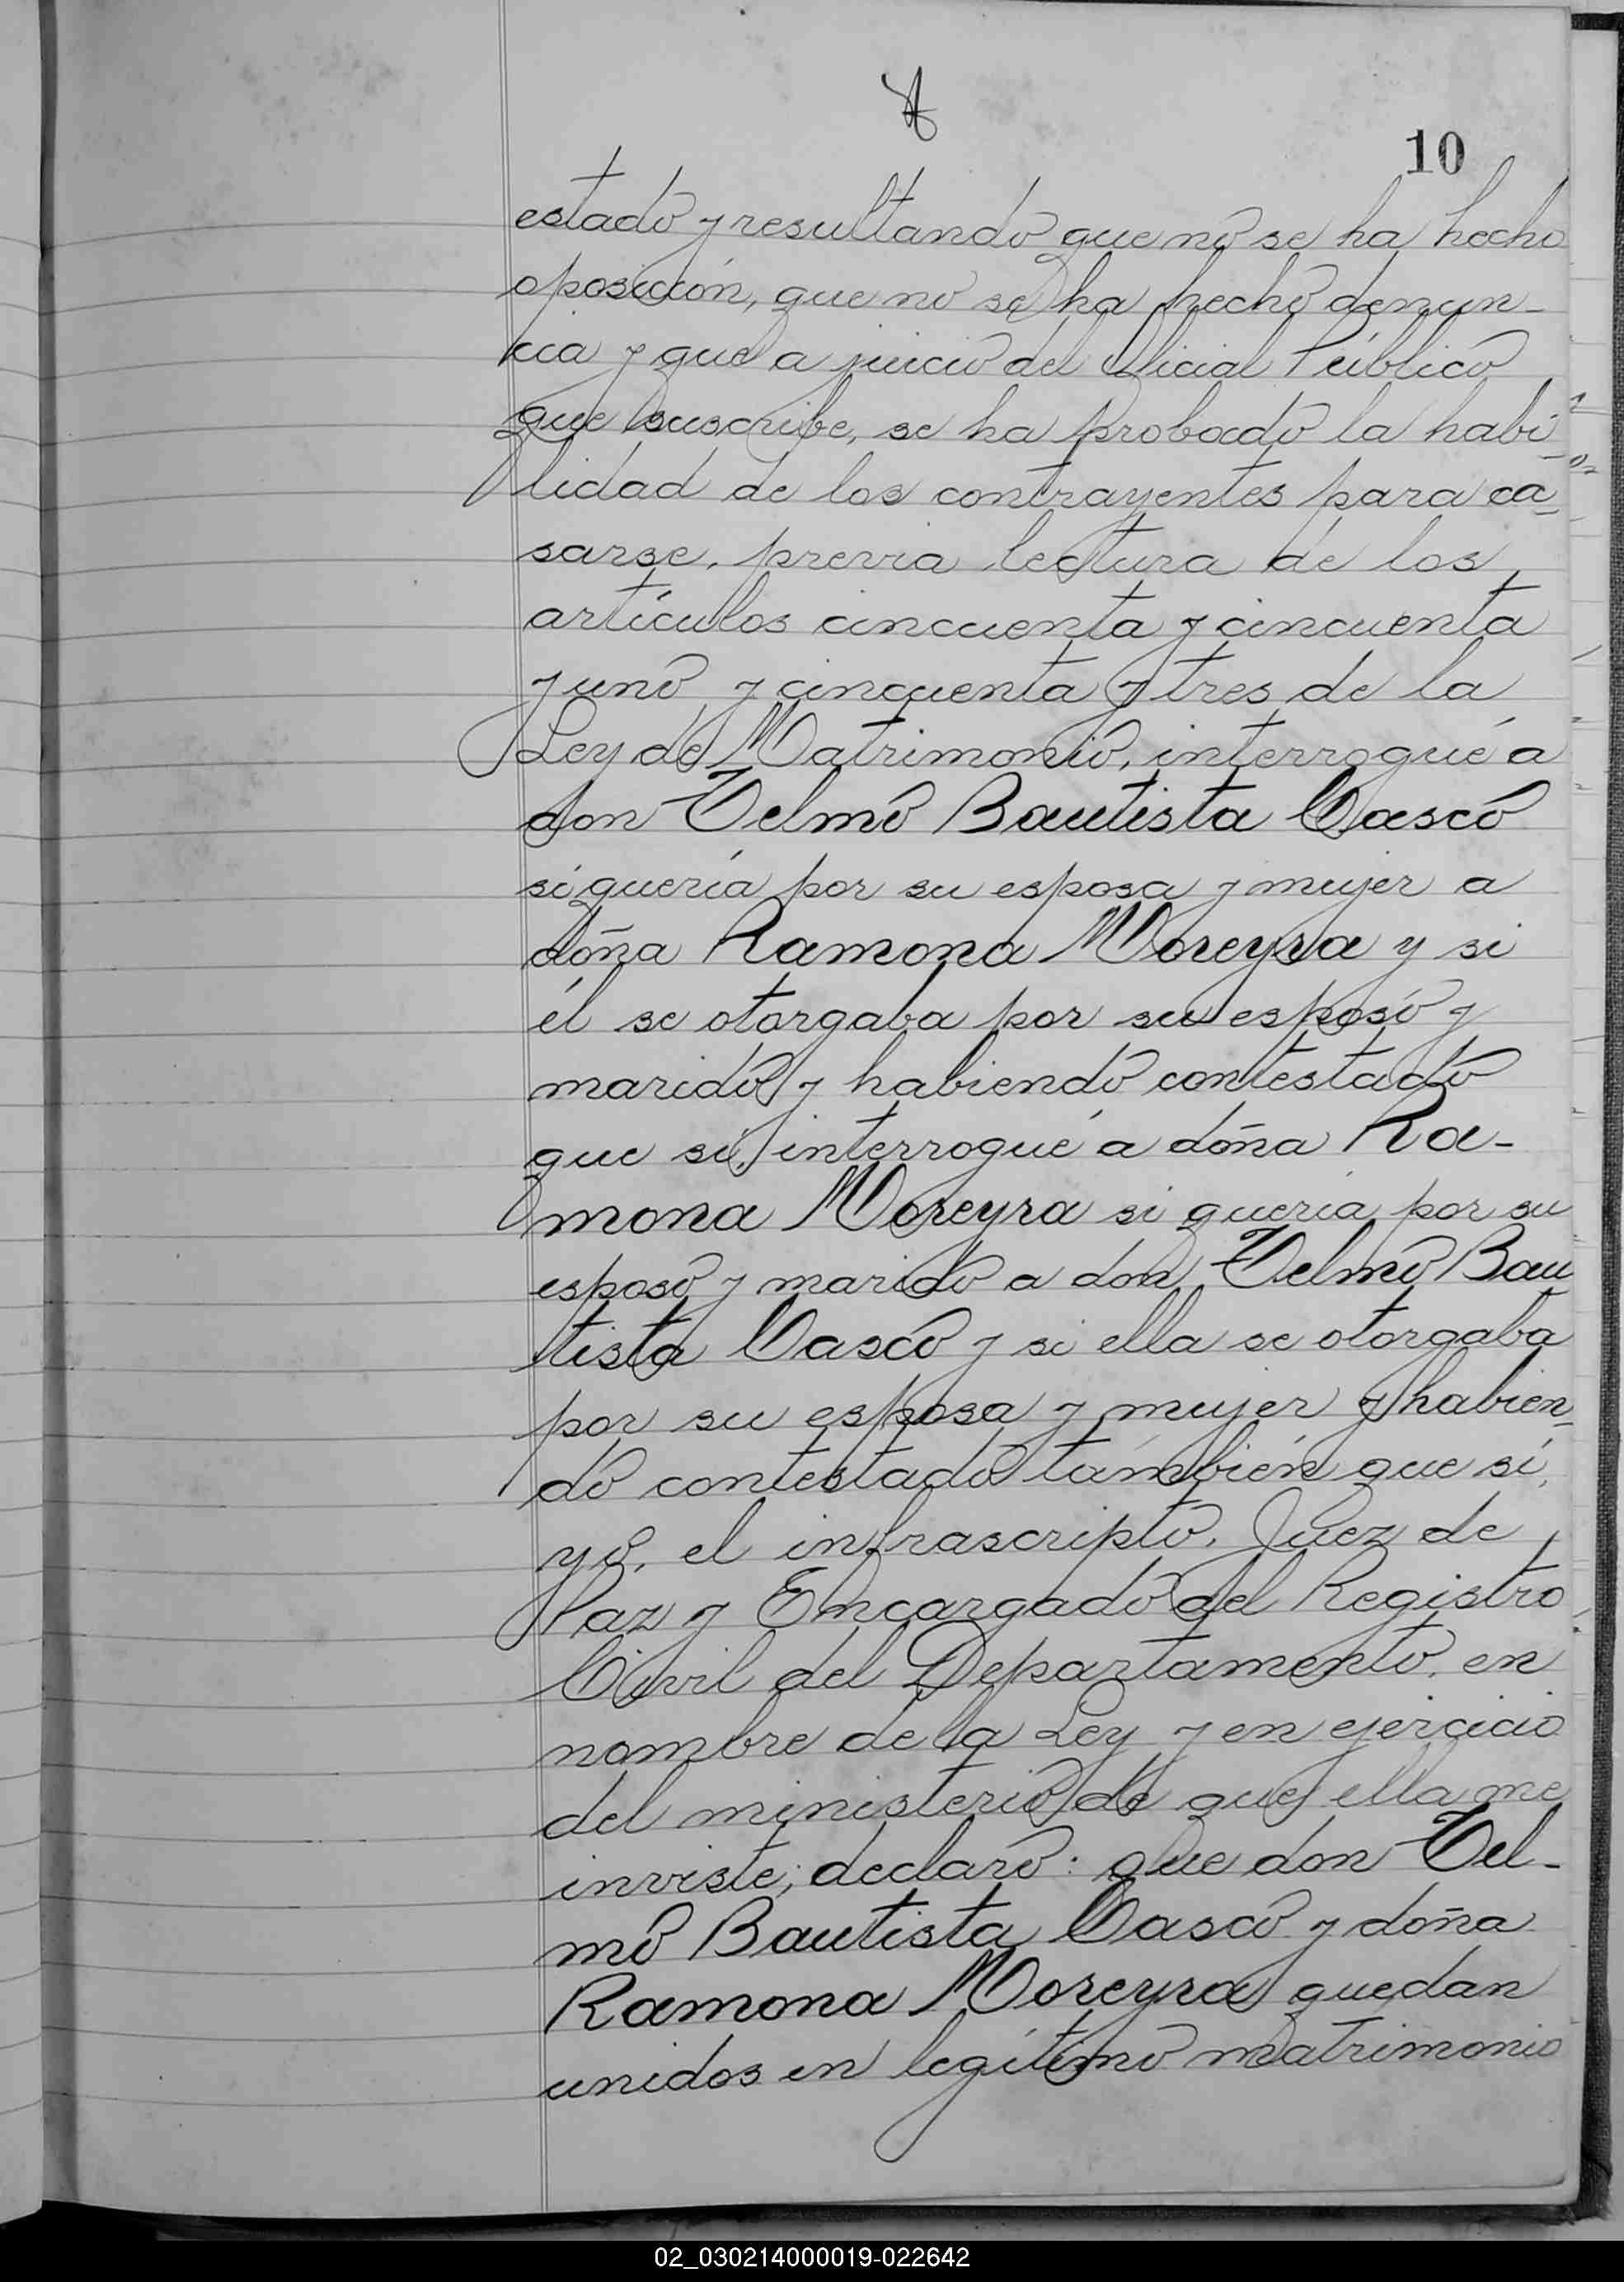 10
estado y resultando que no se ha hecho
oposición, que no se ha hecho denun-
cia y que a juicio del Oficial Público
que suscribe, se ha probado la habi-
lidad de los contrayentes para ca-
sarse, previa lectura de los
artículos cincuenta y cincuenta
y uno y cincuenta y tres de la
Ley de Matrimonio, interrogué a
don Telmo Bautista Casco
si quería por su esposa y mujer a
doña Ramona Moreyra y si
él se otorgaba por su esposo y
marido y habiendo contestado
que sí, interrogué a doña Ra-
mona Moreyra si quería por su
esposo y marido a don Telmo Bau
tista Casco y si ella se otorgaba
por su esposa y mujer y habien-
do contestado también que sí,
yo, el infrascripto, Juez de
Paz y Encargado del Registro
Civil del Departamento, en
nombre de la Ley y en ejercicio
del ministerio de que ella me
inviste; declaro: que don Tel-
mo Bautista Casco y doña
Ramona Moreyra quedan
unidos en legítimo matrimonio
02_030214000019-022642